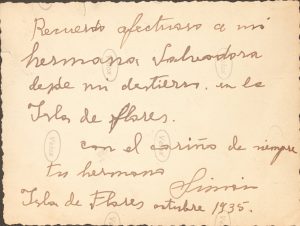 Recuerdo afectuoso a mi
hermana Salvadora
desde mi destierro en la
Isla de flores.
con el cariño de siempre
tu hermano
Simón
Isla de Flores octubre 1935.